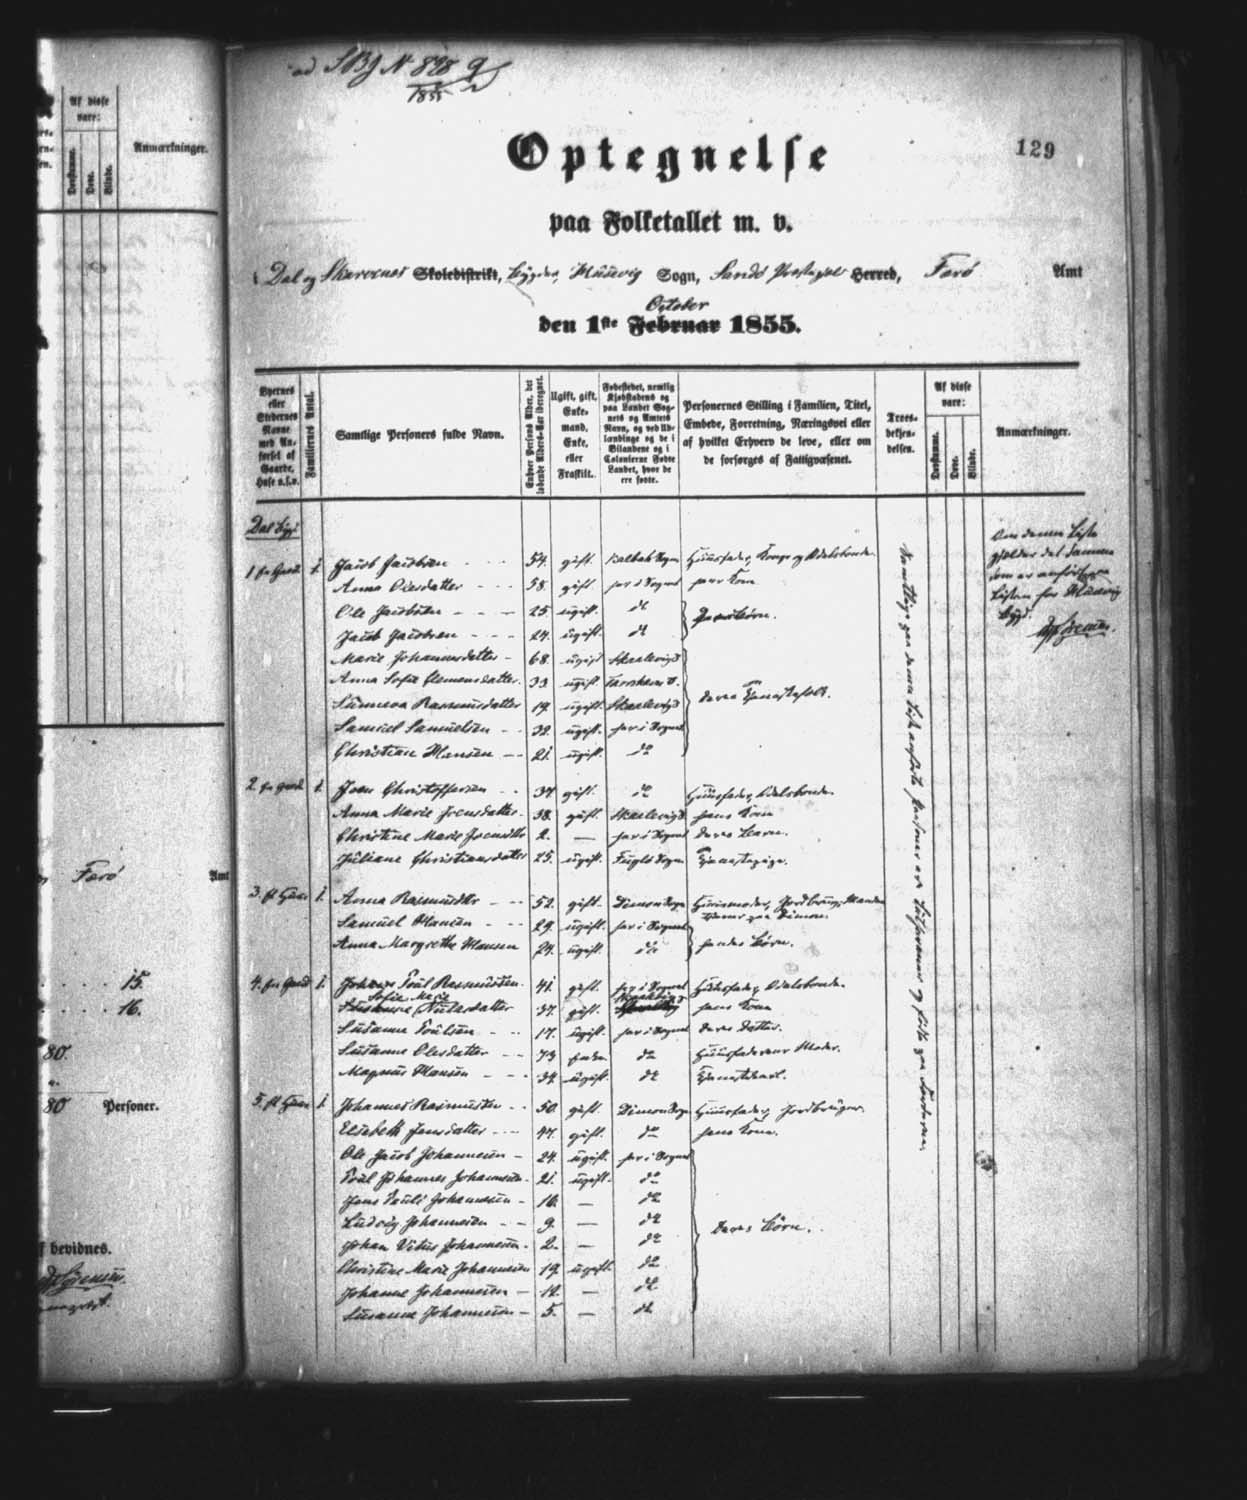 Af disse
vare:
Anmærkninger.
Døvstumme.
Døve.
Blinde.
Farö Amt
15.
16.
80.
80 Personer.
bevidnes.
ad N 898
1855
129
Optegnelse
paa Folketallet m. v.
Dal og Skarvenes Skoledistrikt, Bygder, Huusevig Sogn, Sandö Præstegield Herred, Farö Amt
October
den 1ste Februar 1855.
Byernes eller Stedernes Navne med Anførsel af Gaarde, Huse o.s.v.
Familiernes Antal.
Samtlige Personers fulde Navn.
Enhver Persons Alder, det løbende Alders-Aar iberegnet.
Ugift, gift, Enkemand, Enke, eller Fraskilt.
Fødestedet, nemlig Kjøbstadens og paa Landet Sognets og Amtets Navn, og ved Udlændinge og de i Bilandene og i Colonierne Fødte Landet, hvor de ere fødte.
Personernes Stilling i Familien, Titel, Embede, Forretning, Næringsvei eller af hvilket Erhverv de leve, eller om de forsørges af Fattigvæsenet.
Troesbekjendelsen.
Af disse vare:
Døvstumme.
Døve.
Blinde.
Anmærkninger.
Dal Bygd
Om denne Liste
gjælder det samme
som er anført paa
Listen for Huusevig
Bygd.
1 Gaard 1. Jacob Jacobsen 54. gift. Kalbak Sogn Huusfader, Konge og Odelsbonde.
Anna Olesdatter 58. gift. her i Sognet hans Kone
Ole Jacobsen 25. ugift. do
Jacob Jacobsen 24. ugift. do
Marie Johannesdatter 68. ugift Skaalevigs
Anna Sofie Clemensdatter 33 ugift. Thorshavn
Sunneva Rasmusdatter 19. ugift. Skaalevigs deres Tjenestefolk.
Samuel Samuelsen 32. ugift. her i Sognet
Christian Hansen 21. ugift. do
2. Gaard 1. Joen Christoffersen 34 gift. do Huusfader, Odelsbonde.
Anna Marie Joensdatter 38. gift. Skaalevigs hans Kone
Christine Marie Joensdtr 2. — her i Sognet deres Barn.
Juliane Christiansdatter 25. ugift. Fuglø Sogn Tjenestepige.
3. Huus 1. Anna Rasmusdtr 52. gift. Dimon Sogn Huusmoder, Jordbrug, Manden
tjener paa Dimon.
Samuel Hansen 29. ugift. her i Sognet
Anna Margrethe Hansen 24. ugift. do hendes Børn.
4. Gaard 1. Johannes Poul Rasmussen 41. gift. her i Sognet Huusfader, Odelsbonde.
Sofie Marie
datter 37. gift. hans Kone
Susanne Poulsen 17. ugift. her i Sognet deres Datter.
Susanne Olesdatter 73 Enke do Huusfaderens Moder.
Magnus Hansen 34. ugift. do Tjenestekarl.
5. Huus 1. Johannes Rasmussen 50. gift. Dimon Sogn Huusfader, Jordbruger.
Elsebeth Jensdatter 47. gift. do hans Kone.
Ole Jacob Johannesen 24. ugift. her i Sognet
Poul Johannes Johannesen 21. ugift. do
Jens Pauli Johannesen 16. — do
Ludvig Johannesen 9. — do deres Børn.
Johan Vitus Johannesen 2. — do
Christine Marie Johannesen 19. ugift. do
Johanne Johannesen 12. — do
Susanne Johannesen 5. — do